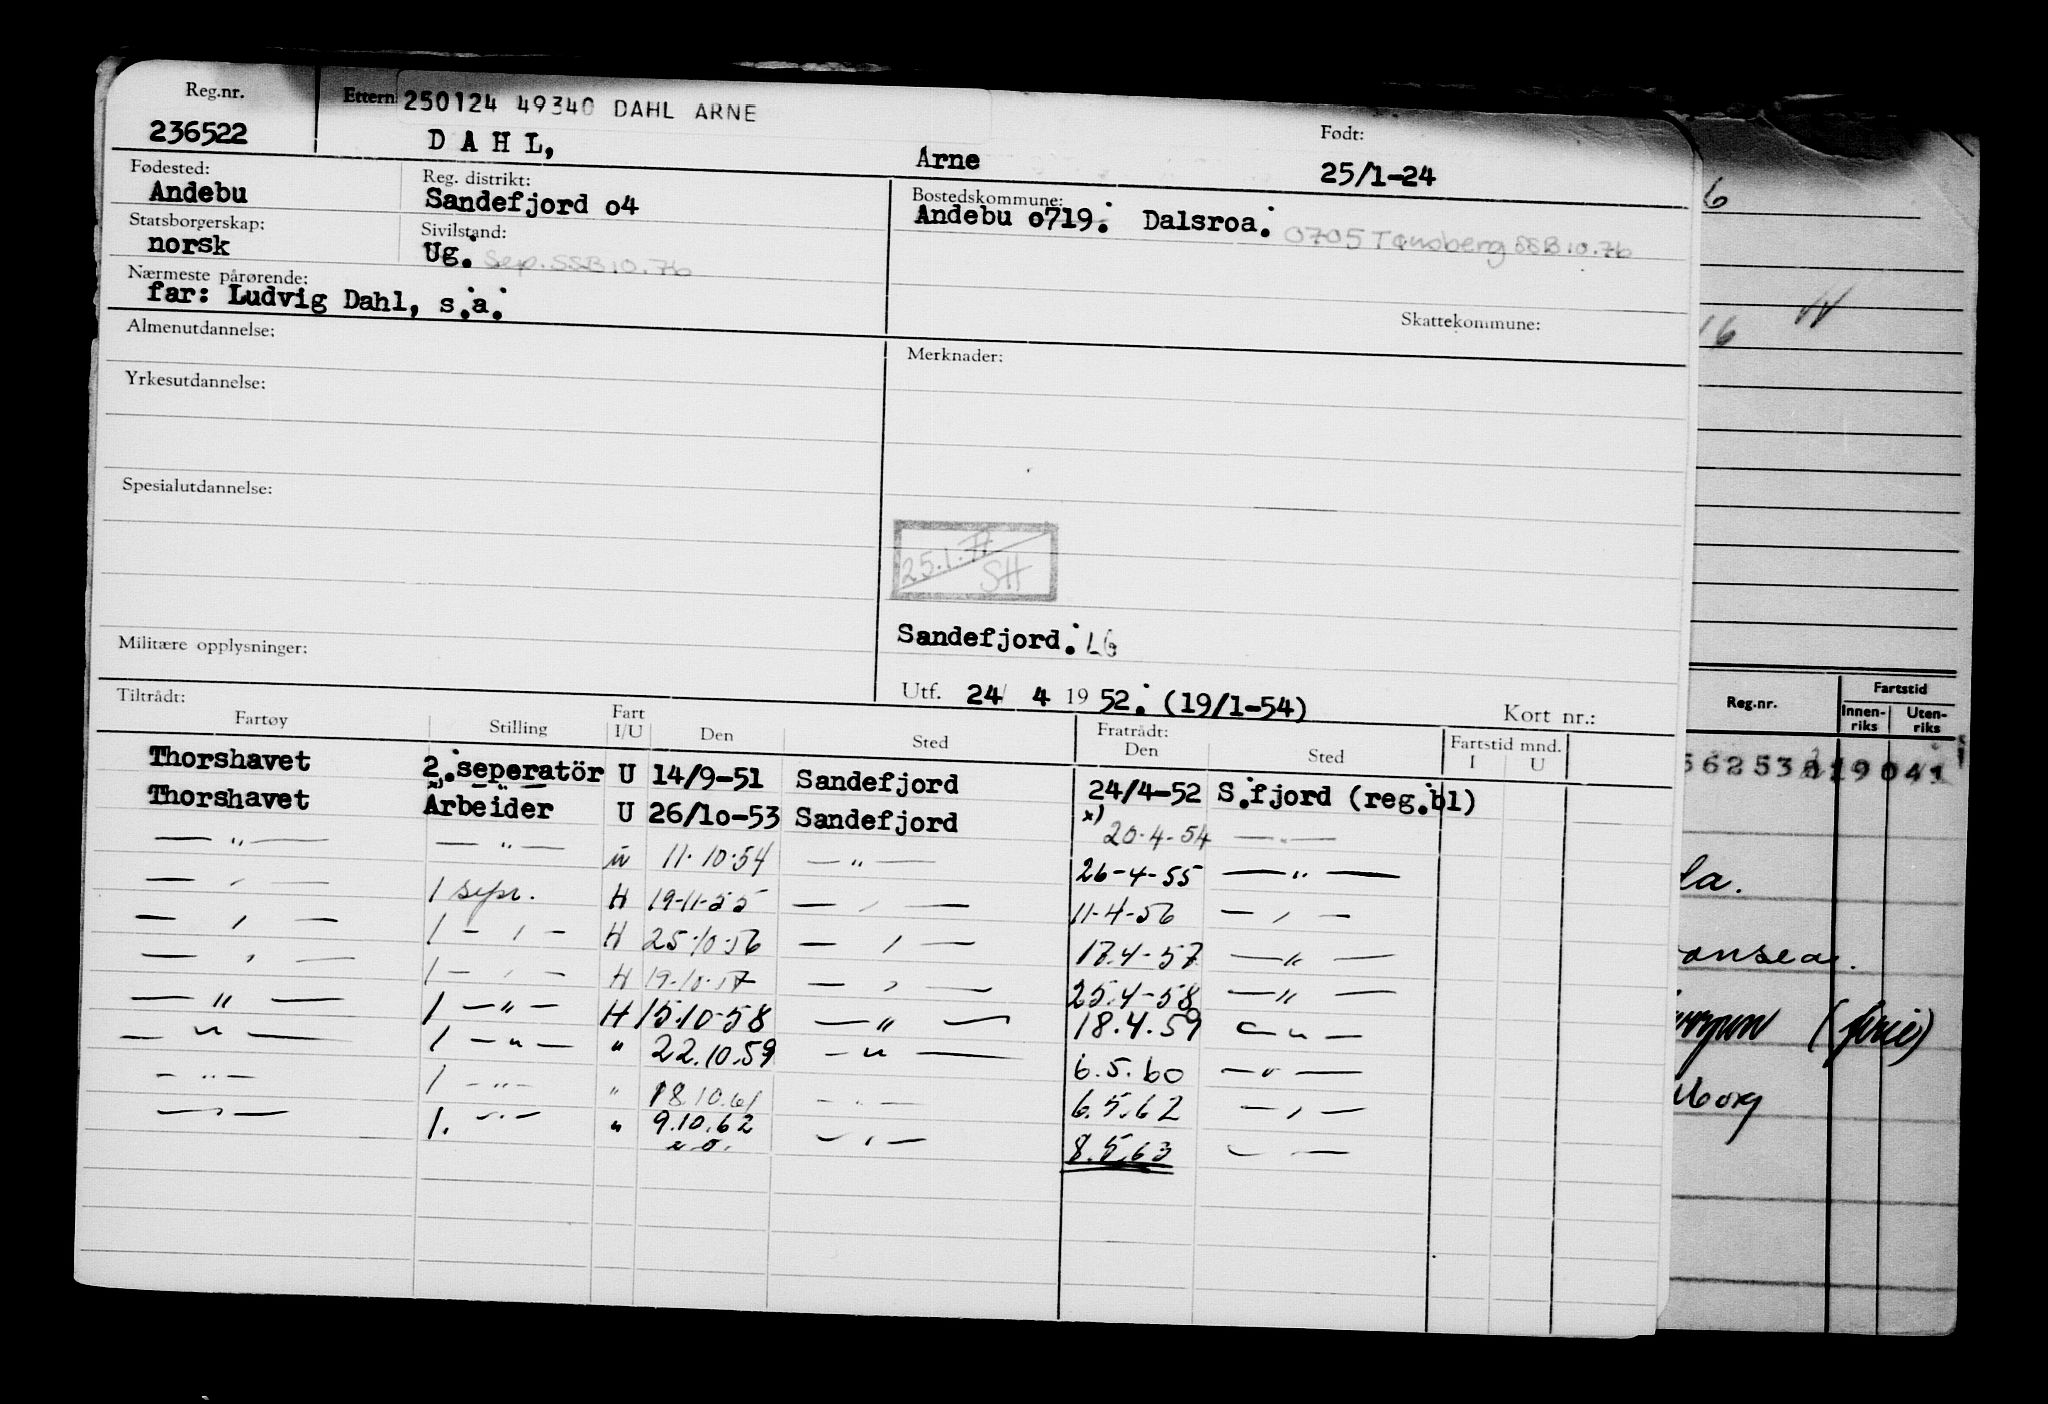 Reg.nr. Ettern 250124 49340 DAHL ARNE Født:
236522 D A H L, Arne 25/1-24
Fødested: Reg. distrikt: Bostedskommune:
Andebu Sandefjord o4 Andebu o719. Dalsroa. 0705 Tønsberg SSB 10.76
Statsborgerskap: Sivilstand:
norsk Ug. Sep. SSB 10.76
Nærmeste pårørende:
far: Ludvig Dahl, s.a.
Skattekommune:
Almenutdannelse: Merknader:
Yrkesutdannelse:
Spesialutdannelse:
25.1.77
SH
Sandefjord. LG
Militære opplysninger:
Utf. 24 4 19 52. (19/1-54) Kort nr.:
Tiltrådt: Fratrådt: Fartstid mnd.
Fartøy Stilling Fart I/U Den Sted Den Sted I U
Thorshavet 2.seperatör U 14/9-51 Sandefjord 24/4-52 S.fjord (reg.bl)
Thorshavet x) Arbeider U 26/1o-53 Sandefjord x) 20-4-54 — " —
— " — — " — u 11-10-54 — " — 26-4-55 — " —
— " — 1 sepr. H 19-11-55 — " — 11-4-56 — " —
— " — 1 — " — H 25-10-56 — " — 17.4-57 — " —
— " — 1 — " — H 19-10-57 — " — 25.4-58 — " —
— " — 1 — " — H 15.10-58 — " — 18.4.59 — " —
— " — 1 — " — " 22.10.59 — " — 6.5.60 — " —
— " — 1 — " — " 18.10.61 — " — 6.5.62 — " —
— " — 1. — " — " 9.10.62 — " — 8.5.63 — " —
Reg.nr. Fartstid
Innen-riks Uten-riks
la.
(finie)